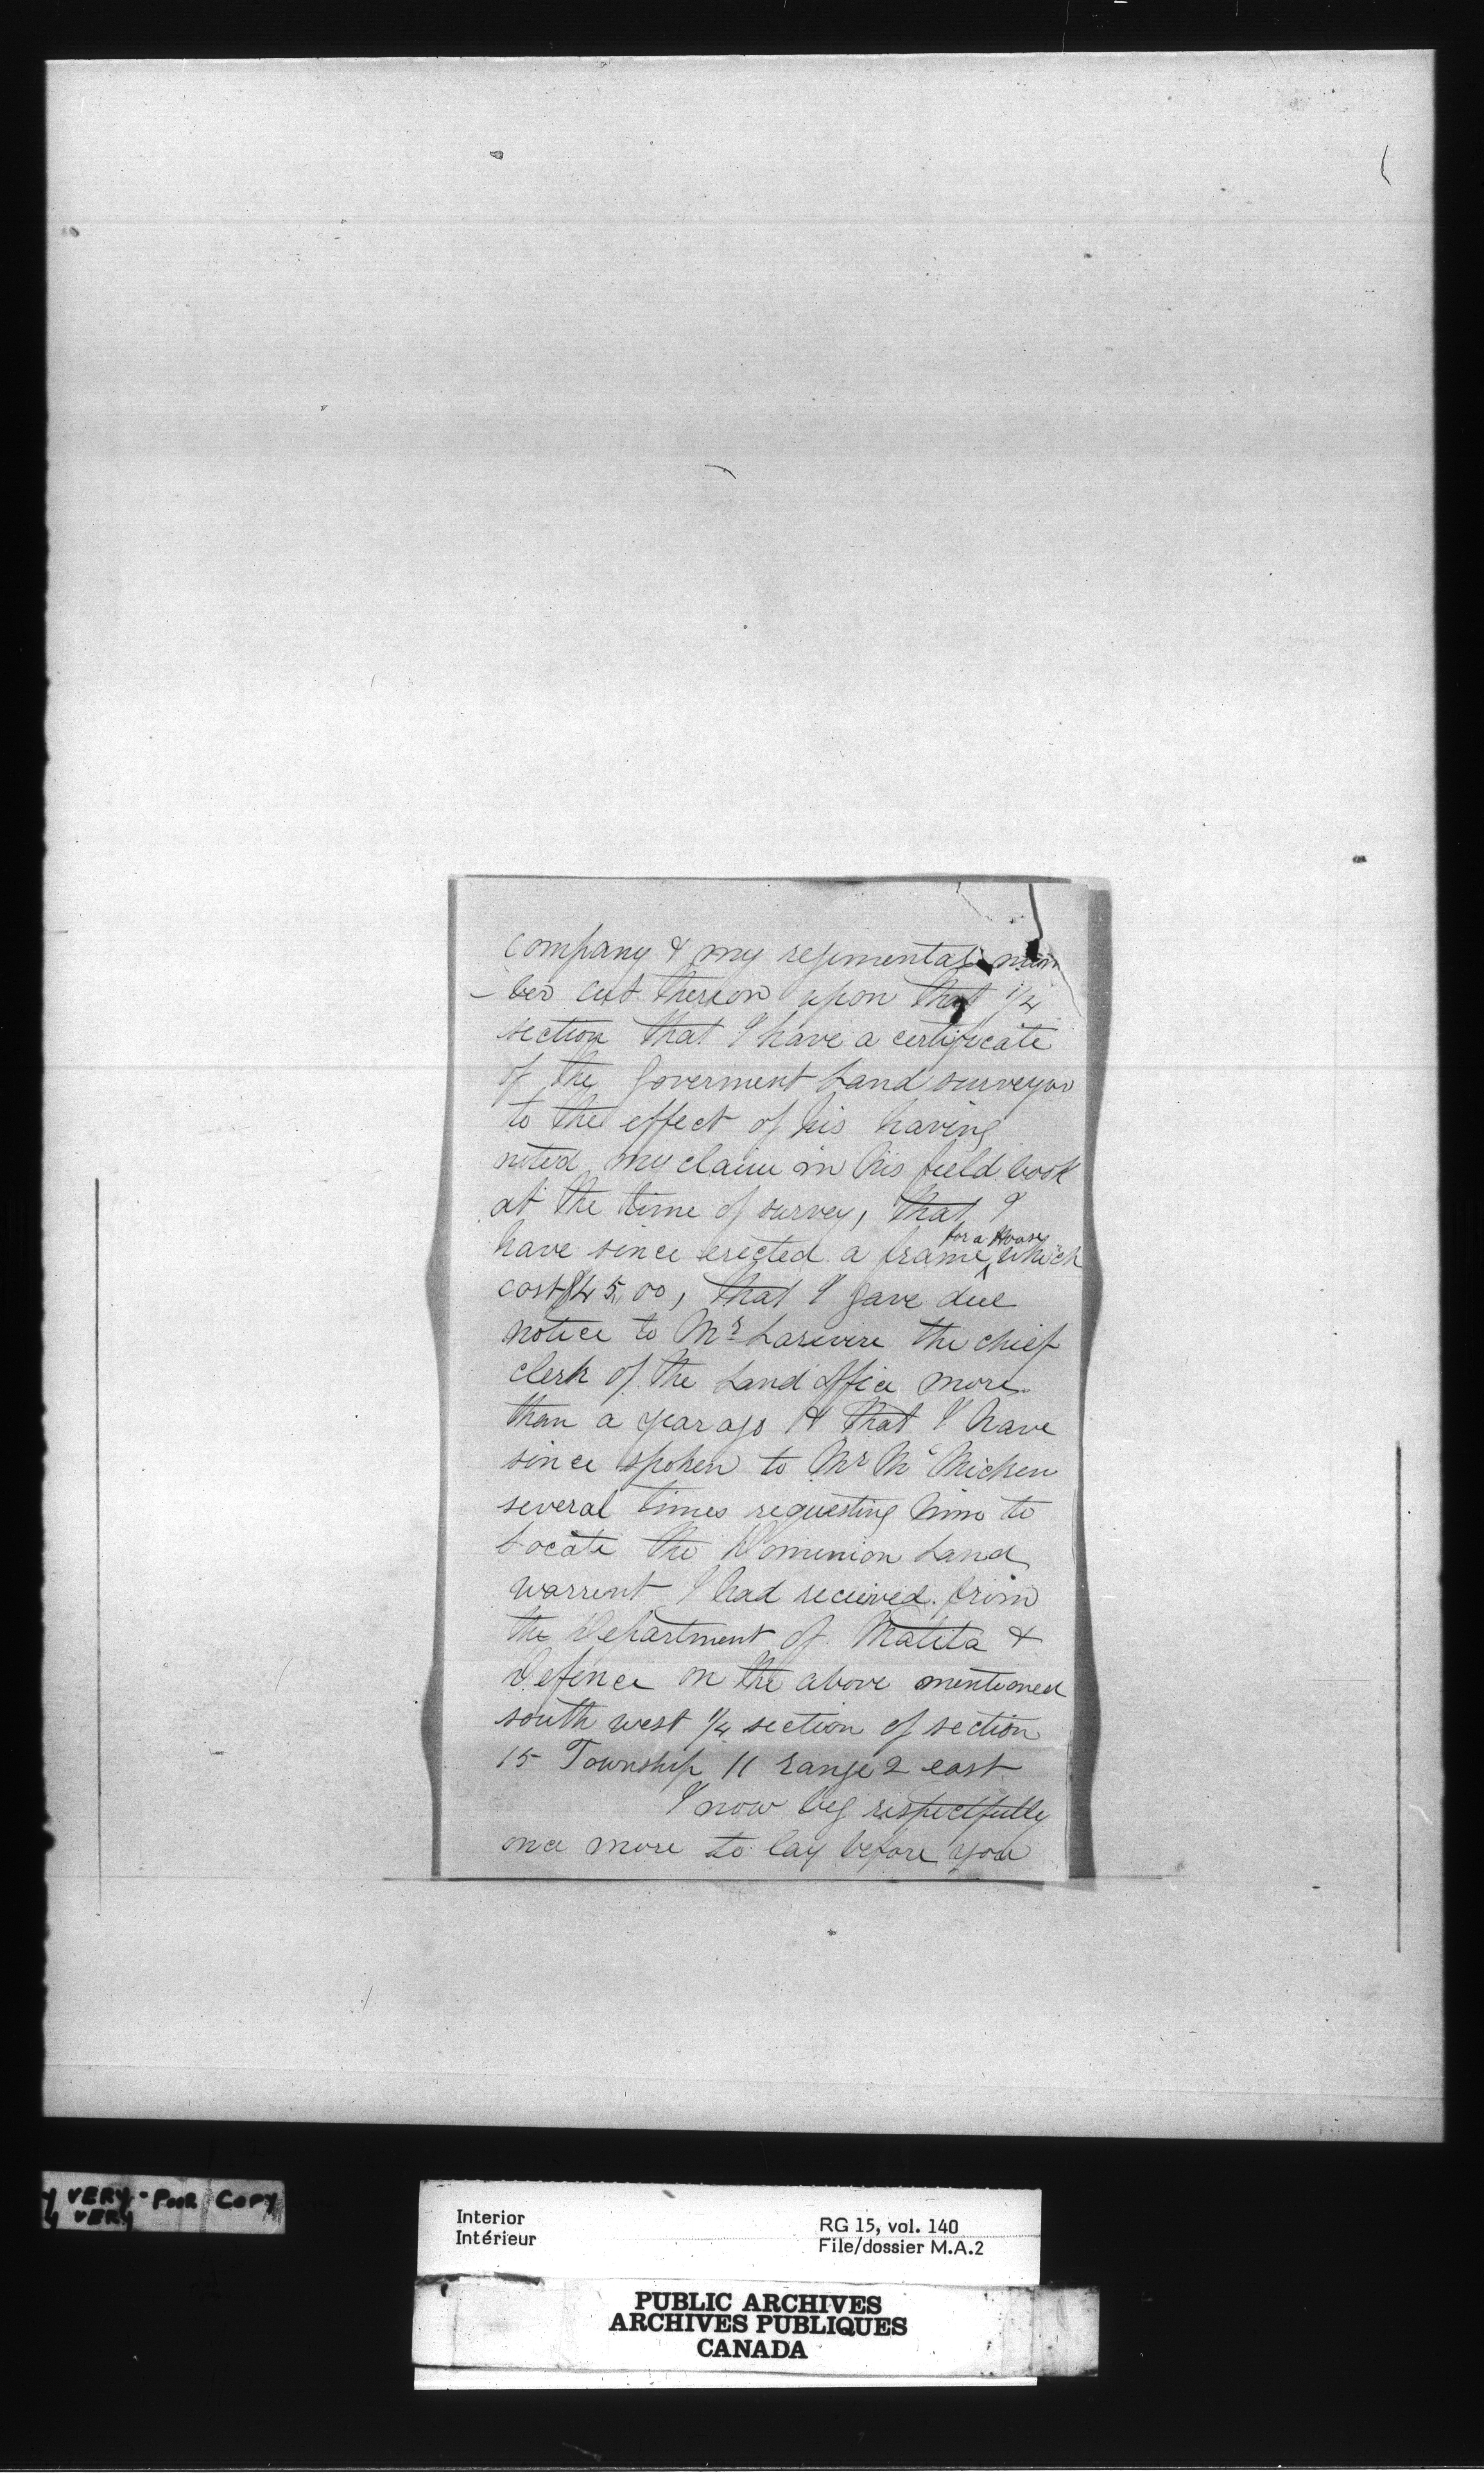 company & my regimental num
- ber cut thereon upon that 1/4
section that I have a certificate
of the Goverment Land surveyor
to the effect of his having
noted my claim in his field book
at the time of survey, that I
have since erected a frame for a House which
cost $45.00, that I gave due
notice to Mr Larivire the chief
clerk of the Land Office more
than a year ago & that I have
since spoken to Mr McMicken
several times requesting him to
Locate the Dominion Land
warrent I had recieved from
the Department of Malita &
Defence on the above mentioned
south west 1/4 section of section
15 Township 11 range 2 east
I now beg respectfully
once more to lay before you
VERY-POOR COPY
VERY
Interior
Intérieur
RG 15, vol. 140
File/dossier M.A.2
PUBLIC ARCHIVES
ARCHIVES PUBLIQUES
CANADA